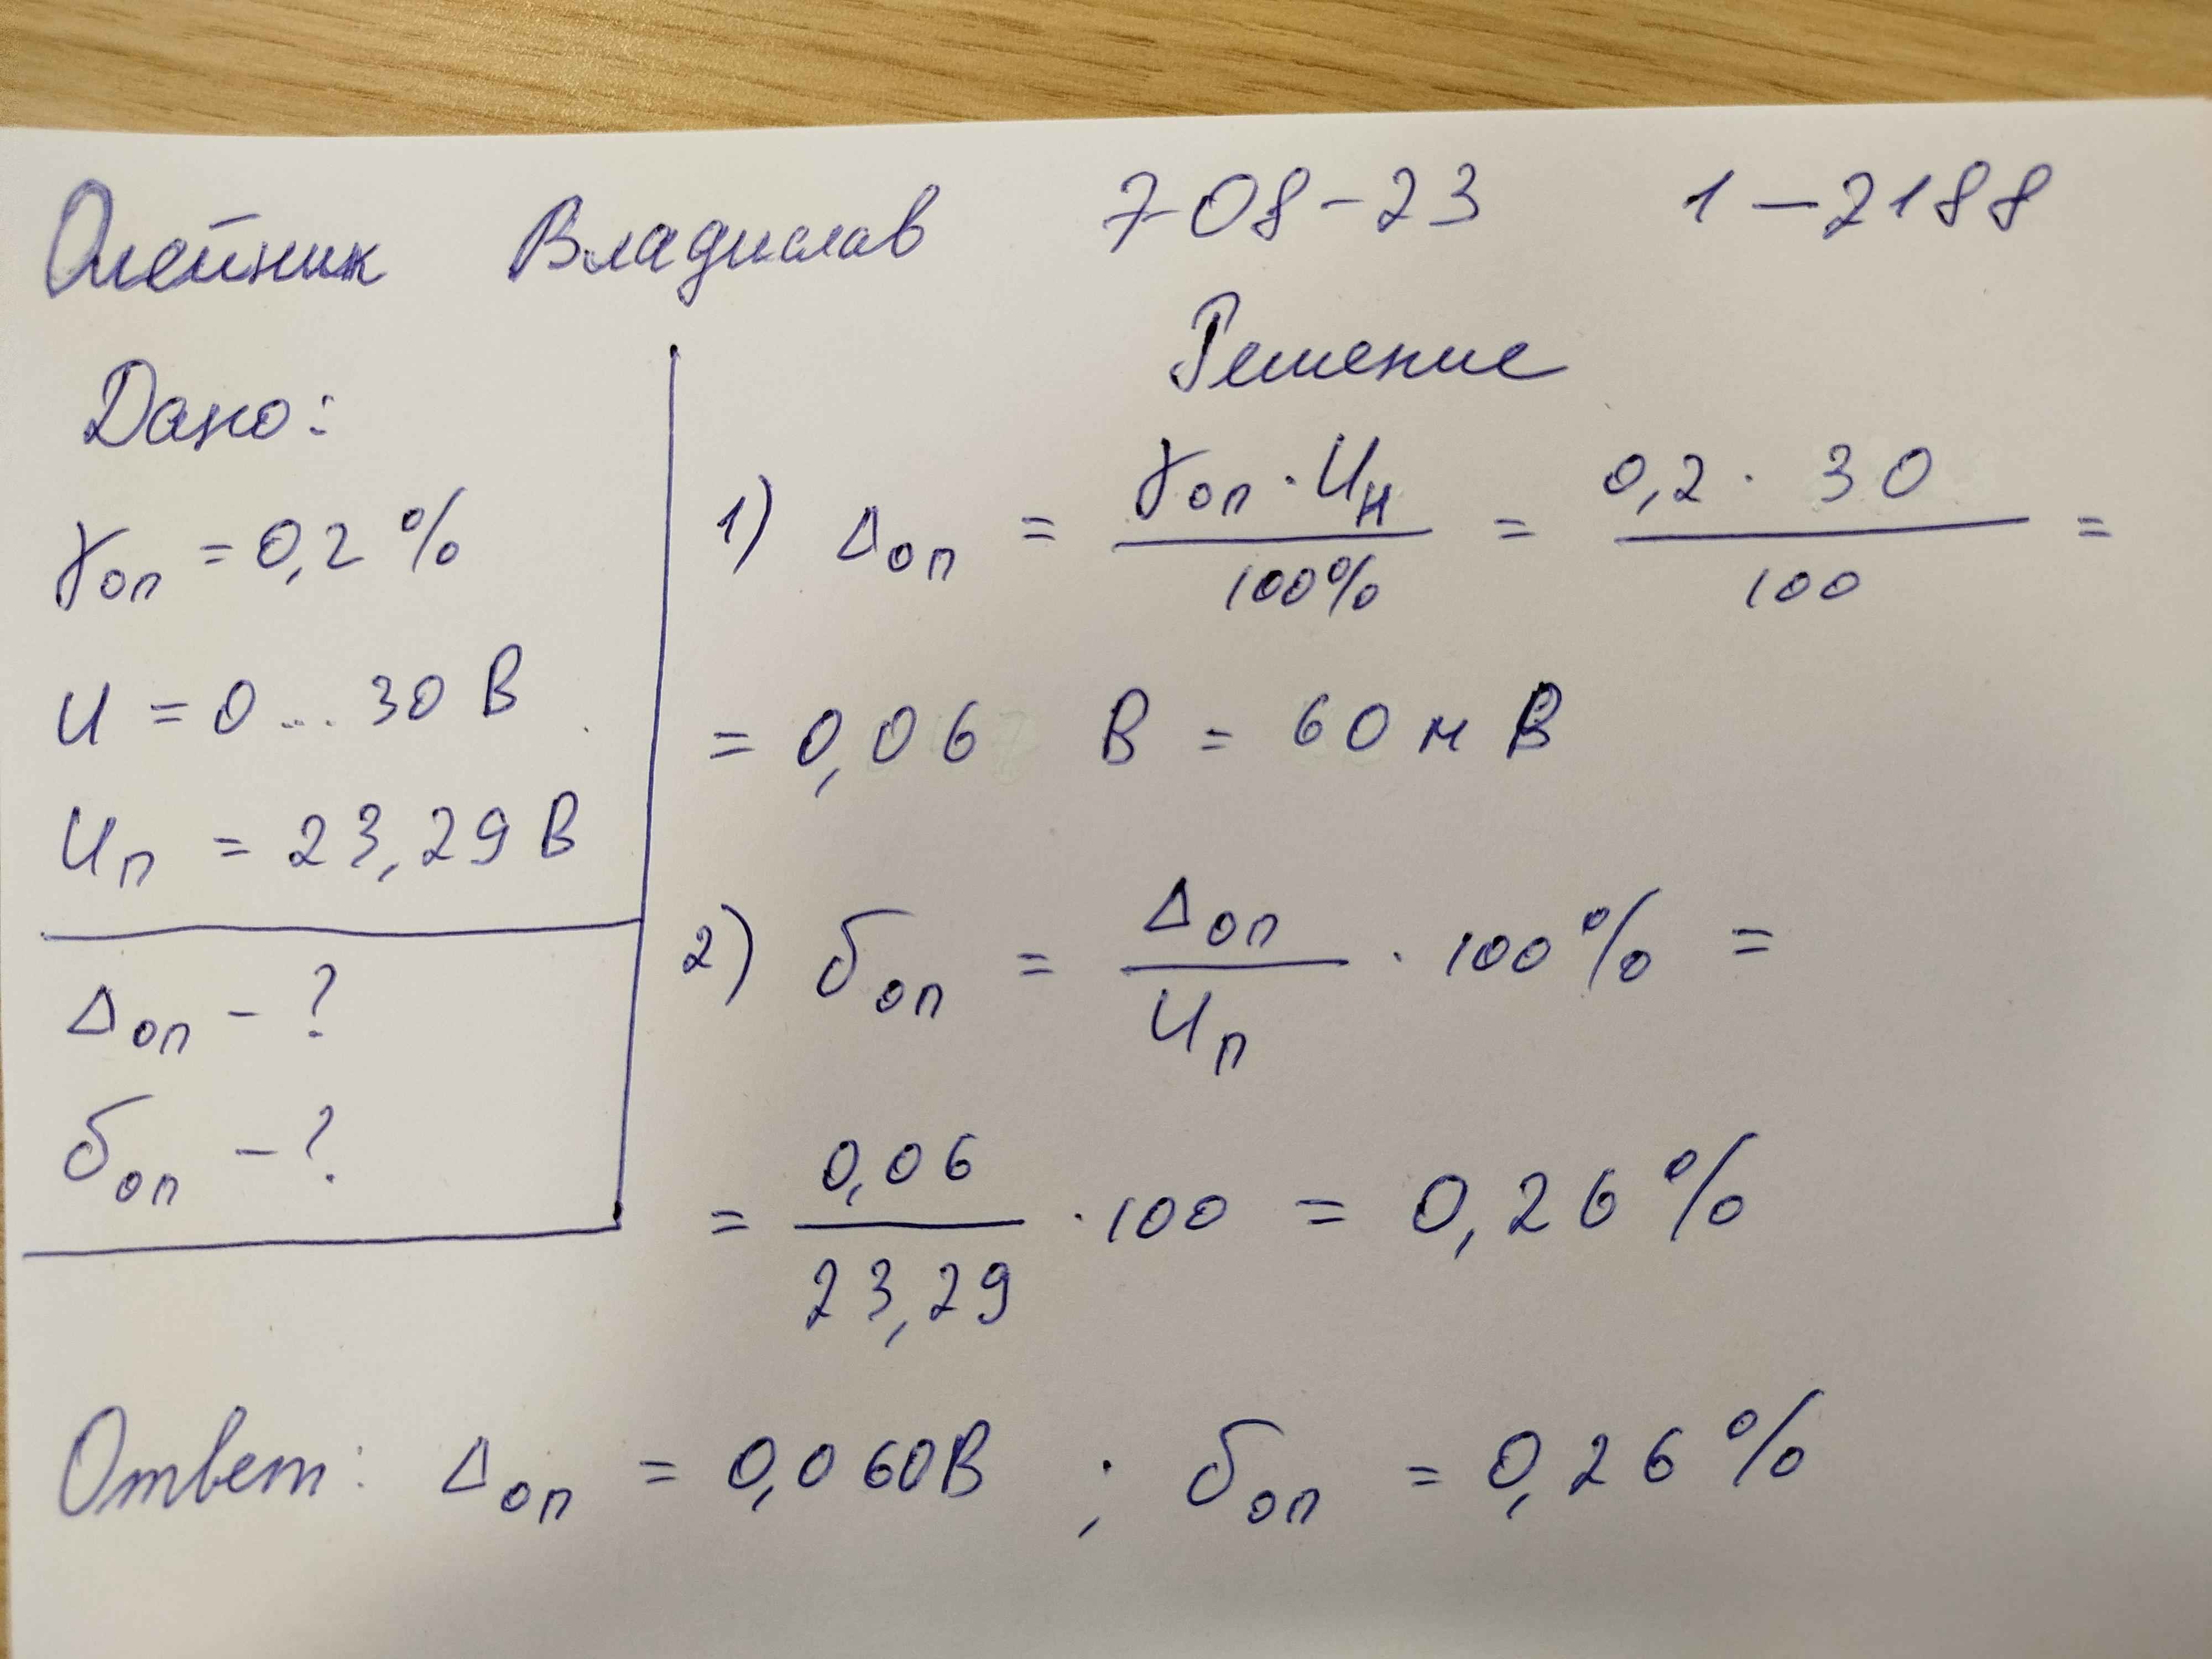 Олейник Владислав 7-08-23 1-2188
Дано:
γоп = 0,2 %
U = 0 ... 30 В
Uп = 23,29 В
Δоп - ?
δоп - ?
Решение
1) Δоп = γоп · Uн / 100% = 0,2 · 30 / 100 =
= 0,06 В = 60 мВ
2) δоп = Δоп / Uп · 100 % =
= 0,06 / 23,29 · 100 = 0,26 %
Ответ: Δоп = 0,060 В ; δоп = 0,26 %